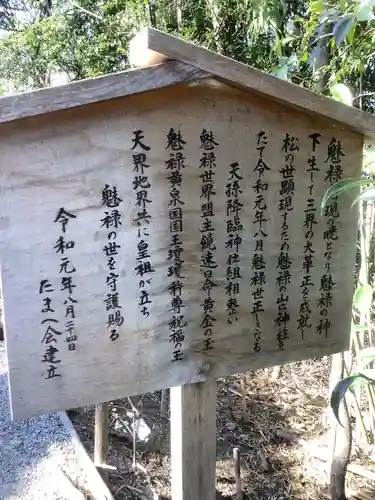 魅禄現の暁となり魅禄の神
下生して三界の大革正と成就し
松の世顕現するため魅禄の山に神社を
たて令和元年八月魅禄世正しとなる
天孫降臨神仕組相整い
魅禄世界盟主饒速日命黄金の玉
魅禄黄泉国国王瓊瓊杵尊祝福の玉
天界地界共に皇祖が立ち
魅禄の世を守護賜る
令和元年八月二十四日
たまへ会建立